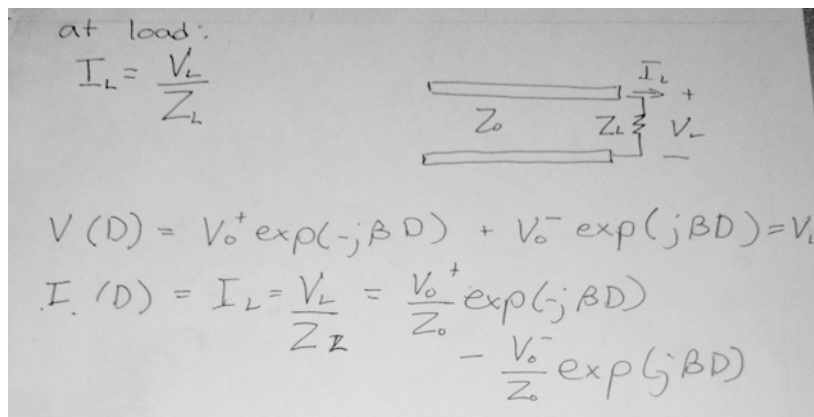 at load:
I_L = V_L / Z_L
I_L
+
Z_0
Z_L
V_L
−
V(D) = V_0^+ exp(-jβD) + V_0^- exp(jβD) = V_L
I(D) = I_L = V_L / Z_L = V_0^+ / Z_0 exp(-jβD)
− V_0^- / Z_0 exp(jβD)